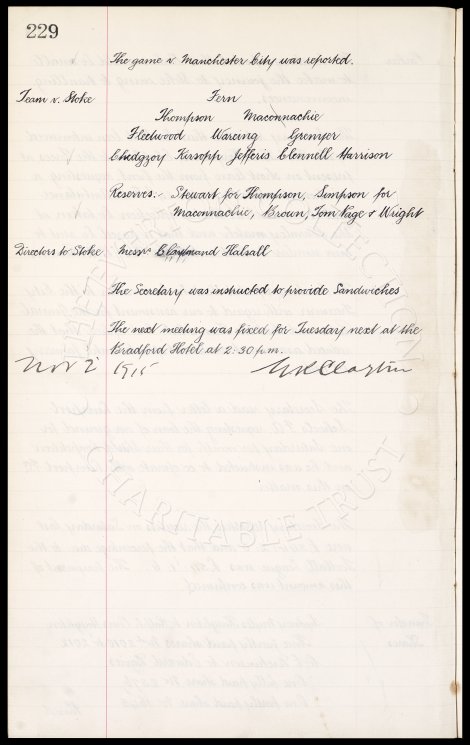 229
The game v. Manchester City was reported.
Team v. Stoke
Fern
Thompson Maconnachie
Fleetwood Wareing Grenyer
Chedgzoy Kirsopp Jefferis Clennell Harrison
Reserves:- Stewart for Thompson, Simpson for
Maconnachie, Brown, Tom Page & Wright
Directors to Stoke Messrs Clayton and Halsall
The Secretary was instructed to provide Sandwiches
The next meeting was fixed for Tuesday next at the
Bradford Hotel at 2:30 p.m.
Nov 2 1915 Clayton
COLLECTION
CHARITABLE TRUST